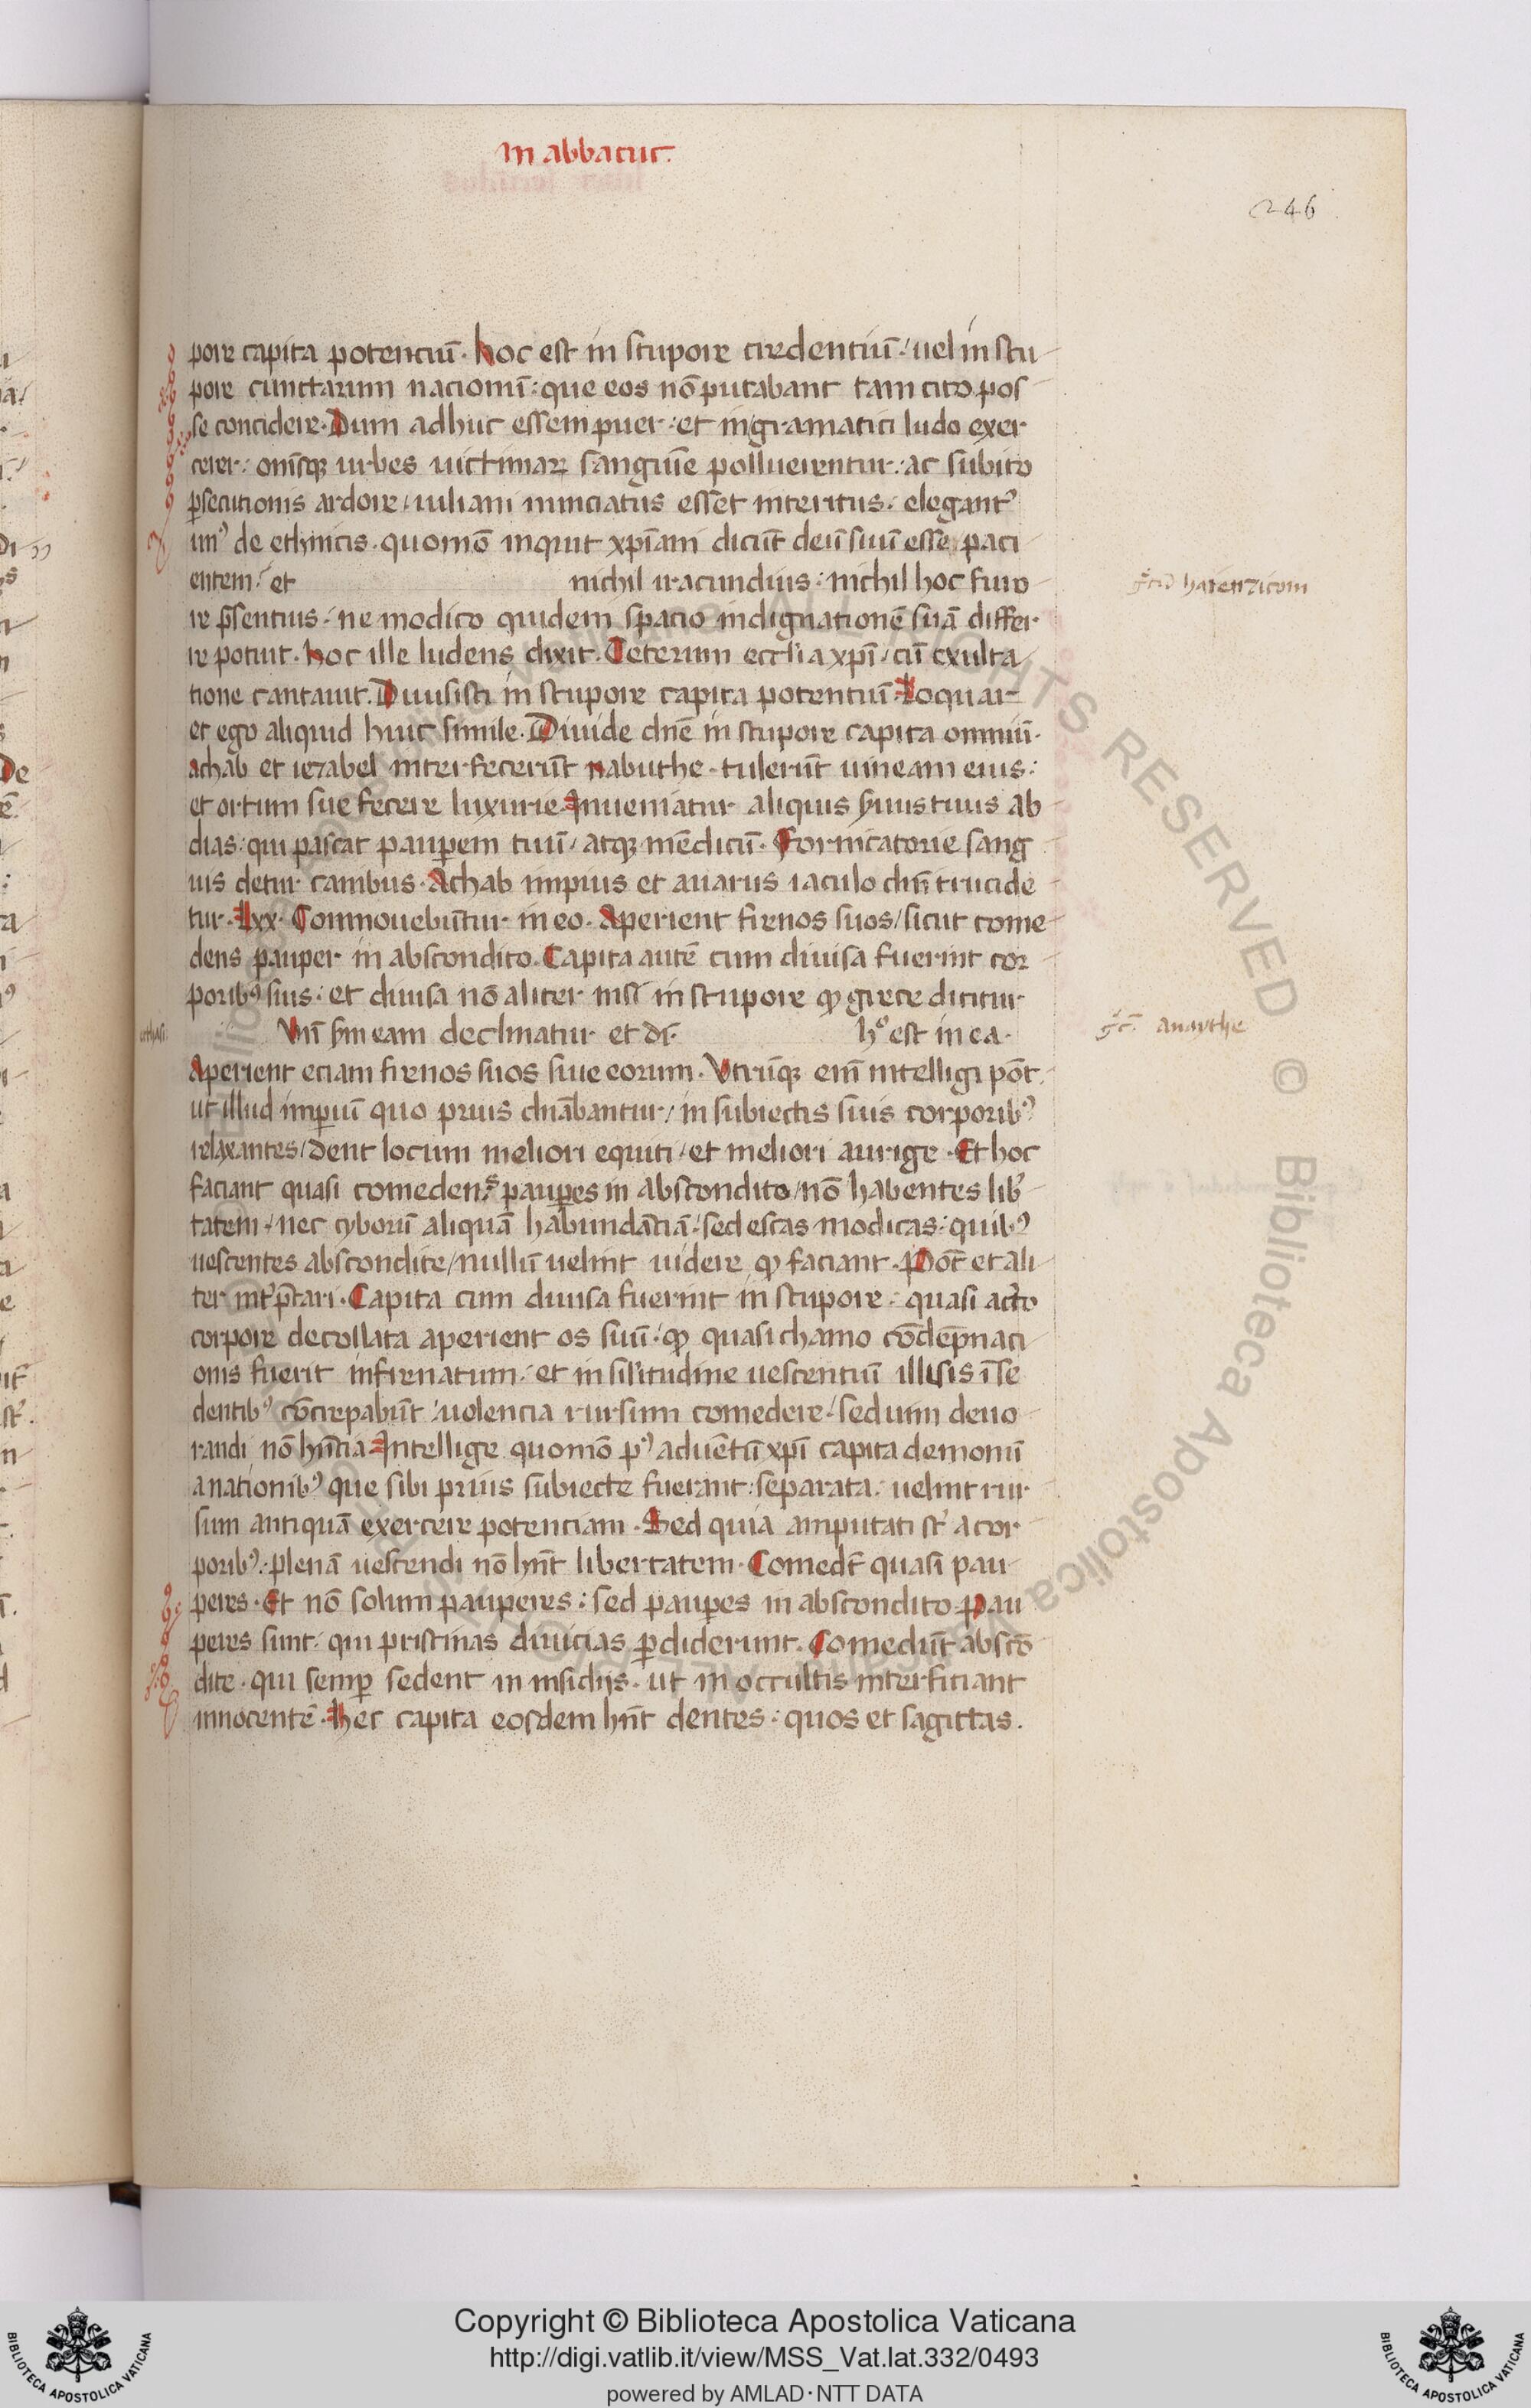 In abbacuc.
246
pore capita potentiū. hoc est in stupore credentiū / uel in stu
pore cunctarum nacionū: que eos nō putabant tam cito pos
se concidere. Dum adhuc essem puer: et in gramatici ludo exer
cerer: om̄sq; urbes uictimaꝝ sanguīe polluerentur: ac subito
ꝑsecutionis ardore / iuliani nunciatus esset interitus. elegantꝰ
unꝰ de ethnicis. quomō inquit xp̄iani dicūt deū suū esse paci
entem: et nichil iracundius: nichil hoc furo
gᷓcū harenzicom
re p̄sentius: ne modico quidem spacio indignationē suā differ
re potuit. hoc ille ludens dixit. Ceterum eccl'ia xp̄i / cū exulta
tione cantauit. Diuisisti in stupore capita potentiū. Loquar
et ego aliquid huic simile. Diuide dn̄e in stupore capita omniū.
achab et iezabel interfecerūt nabuthe. tulerūt uineam eius:
et ortum sue fecere luxurie. Inueniatur aliquis s̄uus tuus ab
dias: qui pascat pauꝑem tuū / atq; mēdicū. Fornicatorie sang
uis detur canibus. Achab impius et auarus iaculo dn̄i trucide
tur. Lxx. Commouebūtur in eo. Aperient frenos suos / sicut come
dens pauper in abscondito. Capita autē cum diuisa fuerint cor
poribꝰ suis: et diuisa nō aliter nisi in stupore qđ grece dicitur
ecthasi
Vn̄ s̄m eam declinatur et dr̄. hº est in ea.
gᷓc̄ anaythe
Aperient eciam frenos suos siue eorum. Vtrūq; em̄ intelligi pōt.
ut illud imꝑiū quo prius dn̄abantur / in subiectis suis corporibꝰ
relaxantes / dent locum meliori equiti / et meliori aurige. Et hoc
faciant quasi comedens pauꝑes in abscondito / nō habentes lib̄
tatem / nec cyborū aliquā habundātiā / sed escas modicas: quibꝰ
uescentes abscondite / nullū uelint uidere qđ faciant. Pōt et ali
ter int̄p̄tari. Capita cum diuisa fuerint in stupore: quasi a c̄to
corpore decollata aperient os suū: qđ quasi chamo cōdēpnati
onis fuerit infrenatum: et in sil'itudine uescentiū illisis ī se
dentibꝰ cōcrepabūt: uolencia rursum comedere / sed uim deuo
randi nō hn̄tia. Intellige quomō pꝰ aduētū xp̄i capita demonū
a nationibꝰ que sibi prius subiecte fuerant: separata: uelint rur
sum antiquā exercere potenciam. Sed quia amputati st̄ a cor
poribꝰ: plenā uescendi nō hn̄t libertatem. Comedt̄ quasi pau
peres. Et nō solum pauperes: sed pauꝑes in abscondito. Pau
peres sunt: qui pristinas diuicias ꝑdiderunt. Comedūt abscō
dite. qui semꝑ sedent in insidijs. ut in occultis interficiant
innocentē. Hec capita eosdem hn̄t dentes: quos et sagittas.
ALL RIGHTS RESERVED © Biblioteca Apostolica Vaticana
Copyright © Biblioteca Apostolica Vaticana
http://digi.vatlib.it/view/MSS_Vat.lat.332/0493
powered by AMLAD·NTT DATA
BIBLIOTECA APOSTOLICA VATICANA
BIBLIOTECA APOSTOLICA VATICANA